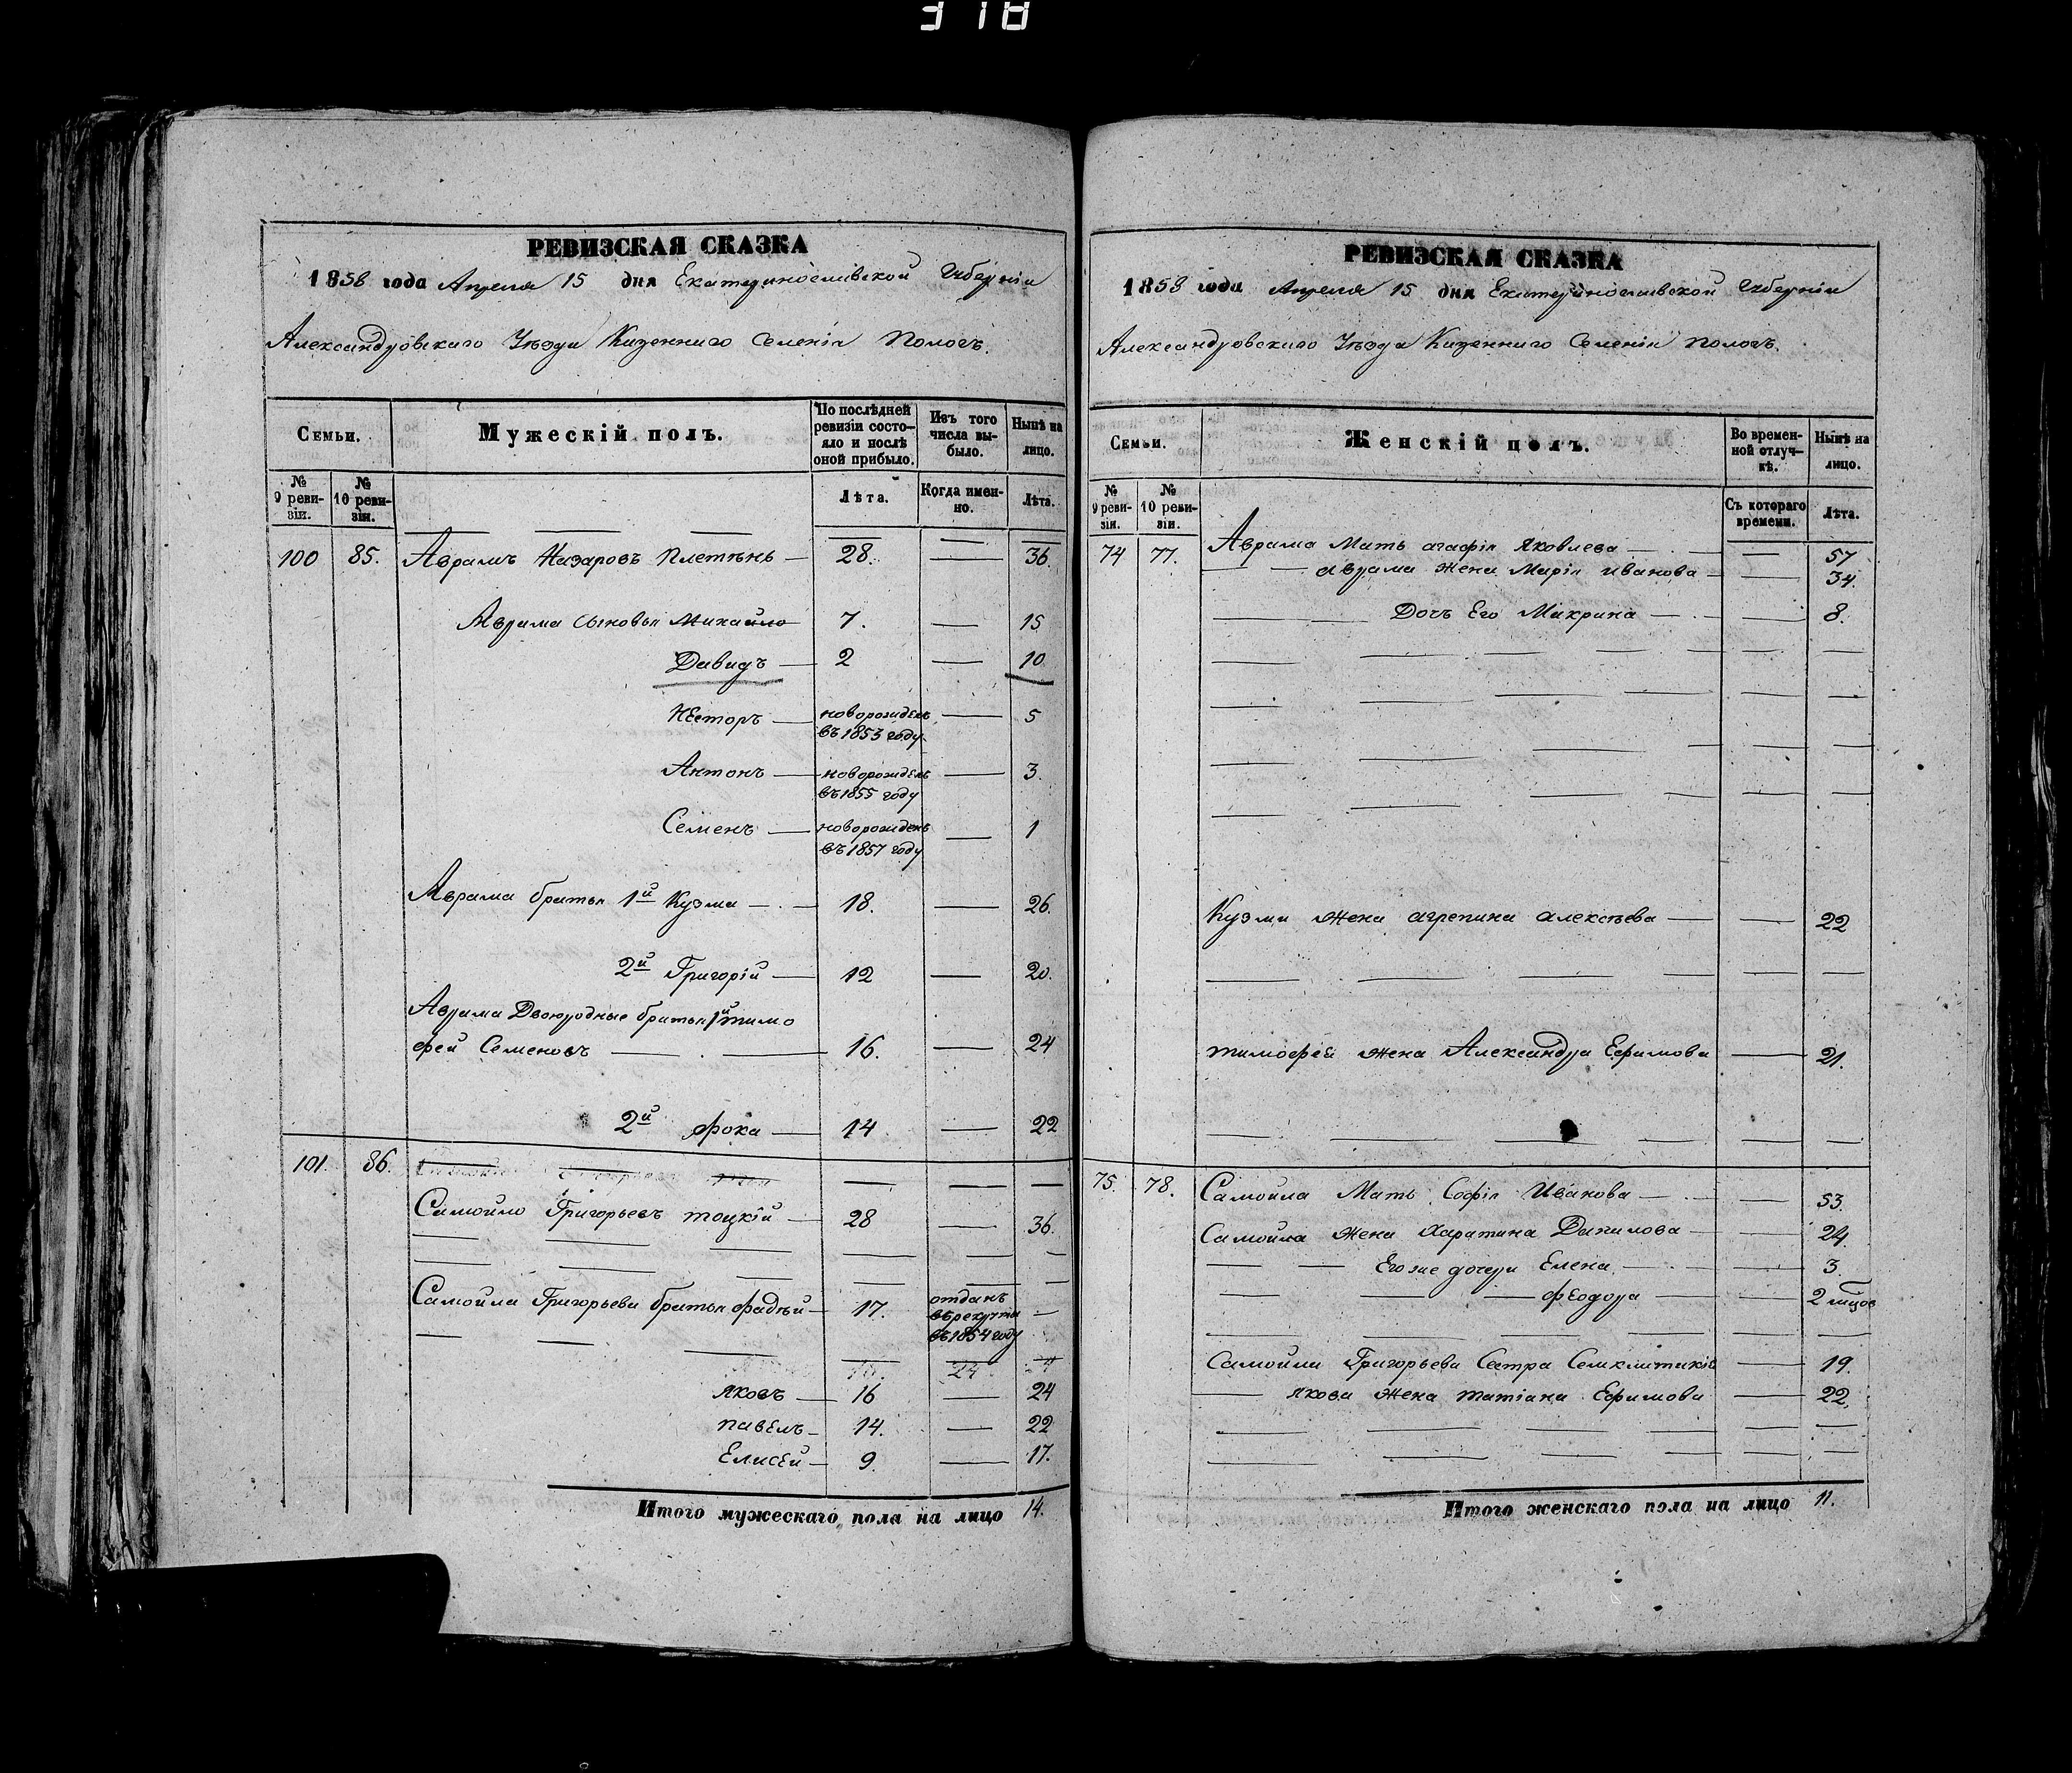 318
РЕВИЗСКАЯ СКАЗКА
1858 года Апреля 15 дня Екатеринославской Губерніи
Александровскаго Уѣзда Казеннаго Селенія Пологъ.
Семьи.
Мужескій полъ.
По послѣдней ревизіи состояло и послѣ оной прибыло.
Изъ того числа выбыло.
Нынѣ на лицо.
№ 9 ревизіи.
№ 10 ревизіи.
Лѣта.
Когда именно.
Лѣта.
100 85. Аврамъ Назаровъ Плетѣнь — 28. — 36.
Аврама сыновья Михайло 7. — 15
Давидъ — 2 — 10
Несторъ — новорожденъ въ 1853 году — 5
Антонъ — новорожденъ въ 1855 году — 3.
Семенъ — новорожденъ въ 1857 году — 1
Аврама братья 1й Кузма — 18. — 26.
2й Григорій — 12 — 20.
Аврама Двоюродные братья 1й тимо
фей Семеновъ — 16. — 24
2й фока — 14 — 22
101. 86.
Самойло Григорьевъ тоцкій — 28 — 36.
Самойла Григорьева братья фадѣй — 17. отданъ въ рекруты въ 1854 году —
яковъ — 16 — 24
павелъ — 14. — 22
Елисей — 9. — 17.
Итого мужескаго пола на лицо 14.
РЕВИЗСКАЯ СКАЗКА
1858 года Апреля 15 дня Екатеринославской Губерніи
Александровскаго Уѣзда Казеннаго Селенія Пологъ.
Семьи.
Женскій полъ.
Во временной отлучкѣ.
Нынѣ на лицо.
№ 9 ревизіи.
№ 10 ревизіи.
Съ котораго времени.
Лѣта.
74 77. Аврама Мать агафія Яковлева — 57
аврама жена Марія иванова — 34.
Дочь Его Макрина — 8.
Кузмы жена агрепина алексѣева — 22
тимофея жена Александра Ефимова — 21.
75. 78. Самойла Мать Софія Иванова — 53.
Самойла жена Харатина Данилова — 24.
Его же дочери Елена — 3
феодора — 2
Самойла Григорьева Сестра — 19.
якова жена татіана Ефимова — 22.
Итого женскаго пола на лицо 11.